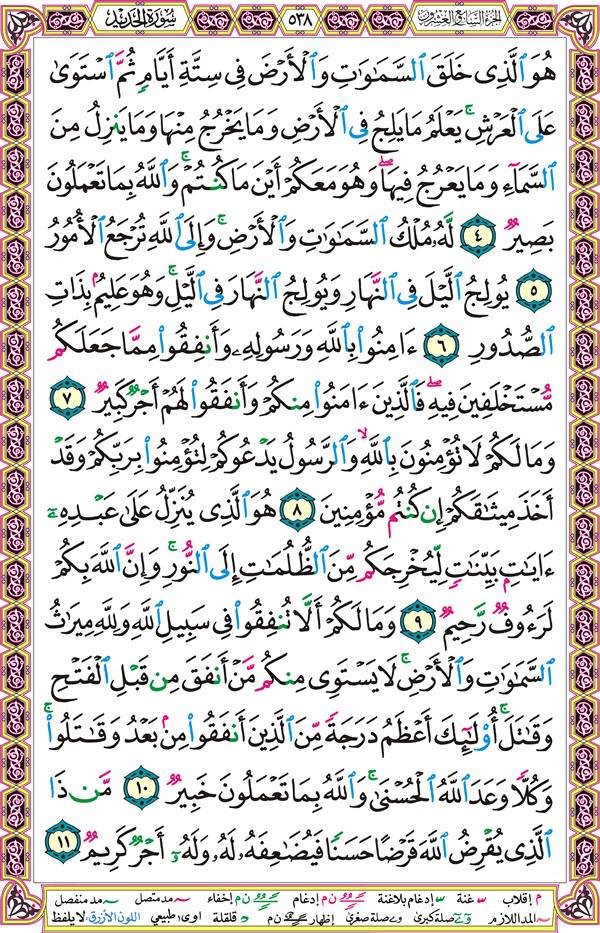 الجزء السابع والعشرون ٥٣٨ سورة الحديد
هُوَ ٱلَّذِى خَلَقَ ٱلسَّمَٰوَٰتِ وَٱلْأَرْضَ فِى سِتَّةِ أَيَّامٍ ثُمَّ ٱسْتَوَىٰ
عَلَى ٱلْعَرْشِ ۚ يَعْلَمُ مَا يَلِجُ فِى ٱلْأَرْضِ وَمَا يَخْرُجُ مِنْهَا وَمَا يَنزِلُ مِنَ
ٱلسَّمَآءِ وَمَا يَعْرُجُ فِيهَا ۖ وَهُوَ مَعَكُمْ أَيْنَ مَا كُنتُمْ ۚ وَٱللَّهُ بِمَا تَعْمَلُونَ
بَصِيرٌ ٤ لَّهُۥ مُلْكُ ٱلسَّمَٰوَٰتِ وَٱلْأَرْضِ ۚ وَإِلَى ٱللَّهِ تُرْجَعُ ٱلْأُمُورُ
٥ يُولِجُ ٱلَّيْلَ فِى ٱلنَّهَارِ وَيُولِجُ ٱلنَّهَارَ فِى ٱلَّيْلِ ۚ وَهُوَ عَلِيمٌۢ بِذَاتِ
ٱلصُّدُورِ ٦ ءَامِنُوا۟ بِٱللَّهِ وَرَسُولِهِۦ وَأَنفِقُوا۟ مِمَّا جَعَلَكُم
مُّسْتَخْلَفِينَ فِيهِ ۖ فَٱلَّذِينَ ءَامَنُوا۟ مِنكُمْ وَأَنفَقُوا۟ لَهُمْ أَجْرٌ كَبِيرٌ ٧
وَمَا لَكُمْ لَا تُؤْمِنُونَ بِٱللَّهِ ۙ وَٱلرَّسُولُ يَدْعُوكُمْ لِتُؤْمِنُوا۟ بِرَبِّكُمْ وَقَدْ
أَخَذَ مِيثَٰقَكُمْ إِن كُنتُم مُّؤْمِنِينَ ٨ هُوَ ٱلَّذِى يُنَزِّلُ عَلَىٰ عَبْدِهِۦٓ
ءَايَٰتٍۭ بَيِّنَٰتٍ لِّيُخْرِجَكُم مِّنَ ٱلظُّلُمَٰتِ إِلَى ٱلنُّورِ ۚ وَإِنَّ ٱللَّهَ بِكُمْ
لَرَءُوفٌ رَّحِيمٌ ٩ وَمَا لَكُمْ أَلَّا تُنفِقُوا۟ فِى سَبِيلِ ٱللَّهِ وَلِلَّهِ مِيرَٰثُ
ٱلسَّمَٰوَٰتِ وَٱلْأَرْضِ ۚ لَا يَسْتَوِى مِنكُم مَّنْ أَنفَقَ مِن قَبْلِ ٱلْفَتْحِ
وَقَٰتَلَ ۚ أُو۟لَٰٓئِكَ أَعْظَمُ دَرَجَةً مِّنَ ٱلَّذِينَ أَنفَقُوا۟ مِنۢ بَعْدُ وَقَٰتَلُوا۟ ۚ
وَكُلًّا وَعَدَ ٱللَّهُ ٱلْحُسْنَىٰ ۚ وَٱللَّهُ بِمَا تَعْمَلُونَ خَبِيرٌ ١٠ مَّن ذَا
ٱلَّذِى يُقْرِضُ ٱللَّهَ قَرْضًا حَسَنًا فَيُضَٰعِفَهُۥ لَهُۥ وَلَهُۥٓ أَجْرٌ كَرِيمٌ ١١
م إقلاب غنة إدغام بلاغنة ن م إدغام ن م إخفاء مد متصل مد منفصل
المد اللازم صلة كبرى صلة صغرى إظهار ن م قلقلة اوى طبيعي اللون الأزرق لا يلفظ